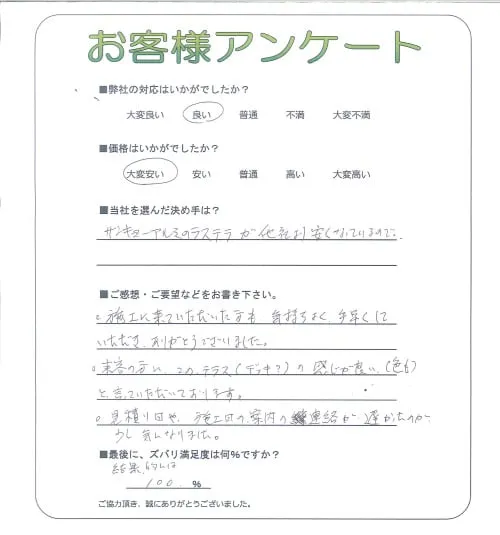 お客様アンケート
■弊社の対応はいかがでしたか？
大変良い 良い 普通 不満 大変不満
■価格はいかがでしたか？
大変安い 安い 普通 高い 大変高い
■当社を選んだ決め手は？
サンキューアルミのラステラが他社より安くなっているので。
■ご感想・ご要望などをお書き下さい。
○施工に来ていただいた方も気持ちよく、手早くして
いただき、ありがとうございました。
○来客の方に、このテラス(デッキ？)の感じが良い(色も)
と言っていただいております。
○見積り日や、施工日の案内の連絡が遅かったのが
少し気になりました。
■最後に、ズバリ満足度は何％ですか？
結果的には
100 %
ご協力頂き、誠にありがとうございました。